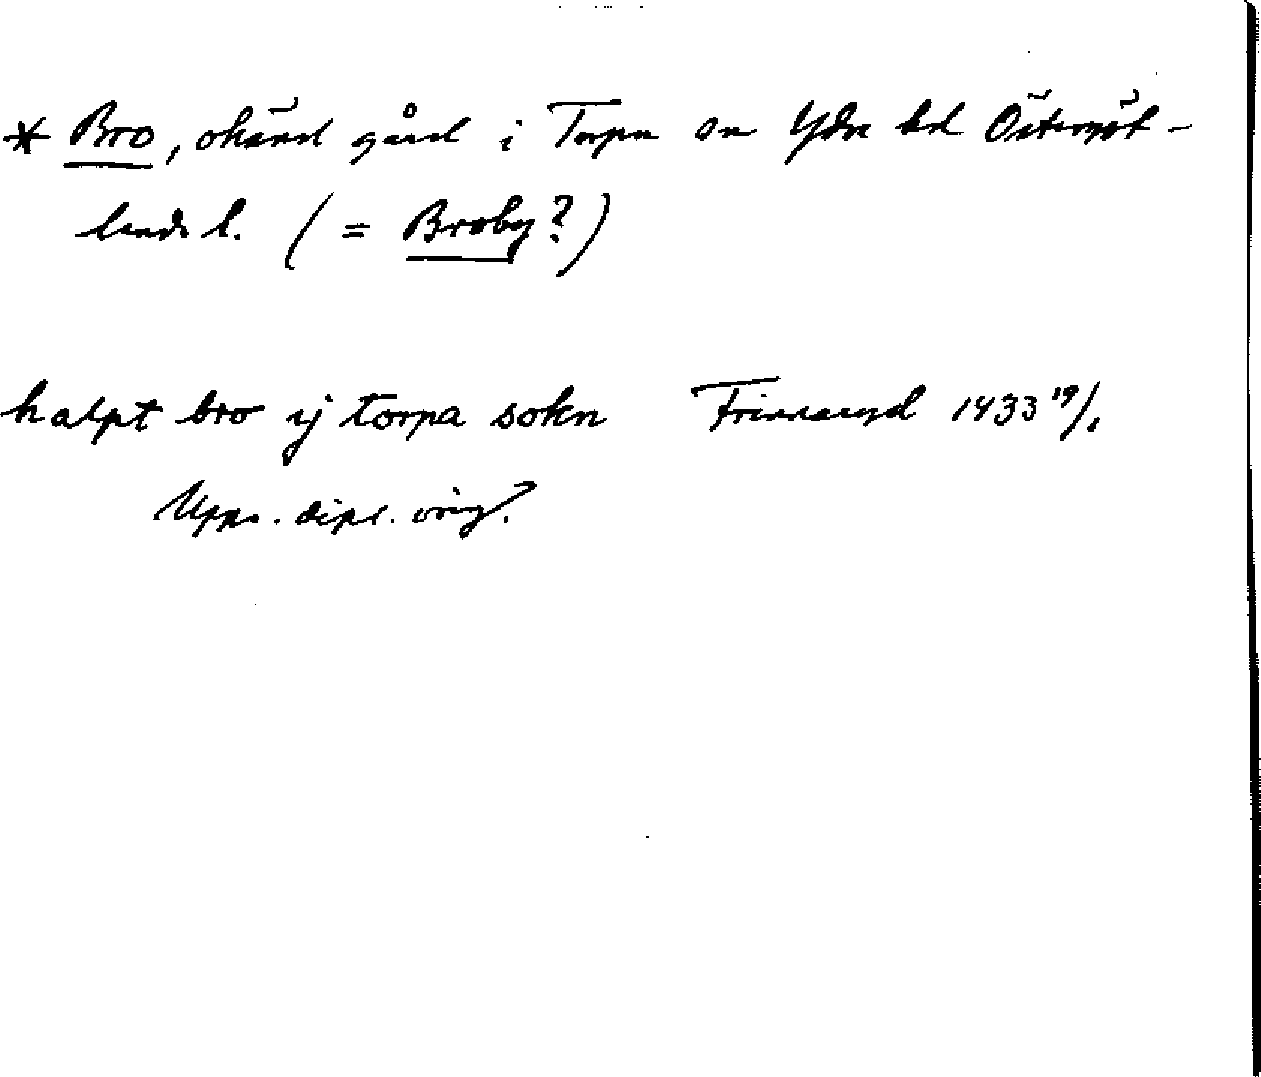 * Bro, okänd gård i Torpa sn Ydre hd Östergöt-
lands l. (= Broby?)
halpt bro ij torpa sokn Frinnaryd 1433 19/1
Upps. dipl. orig.